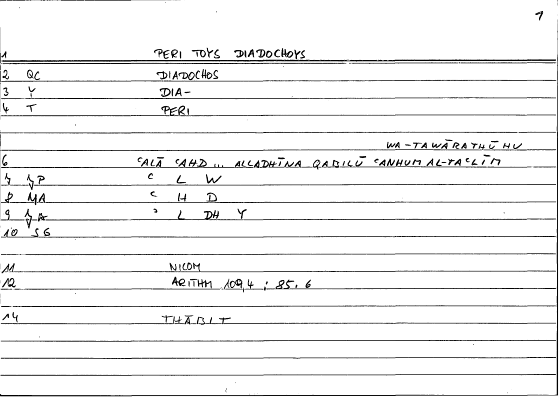 1
1 PERI TOYS DIADOCHOYS
2 QC DIADOCHOS
3 Y DIA-
4 T PERI
WA-TAWĀRATHŪHU
6 ʿALĀ ʿAHD ... ALLADHĪNA QABILŪ ʿANHUM AL-TAʿLĪM
7 P ʿ L W
8 MA ʿ H D
9 A ʾ L DH Y
10 SG
11 NICOM
12 ARITHM 109,4 ; 85,6
14 THĀBIT